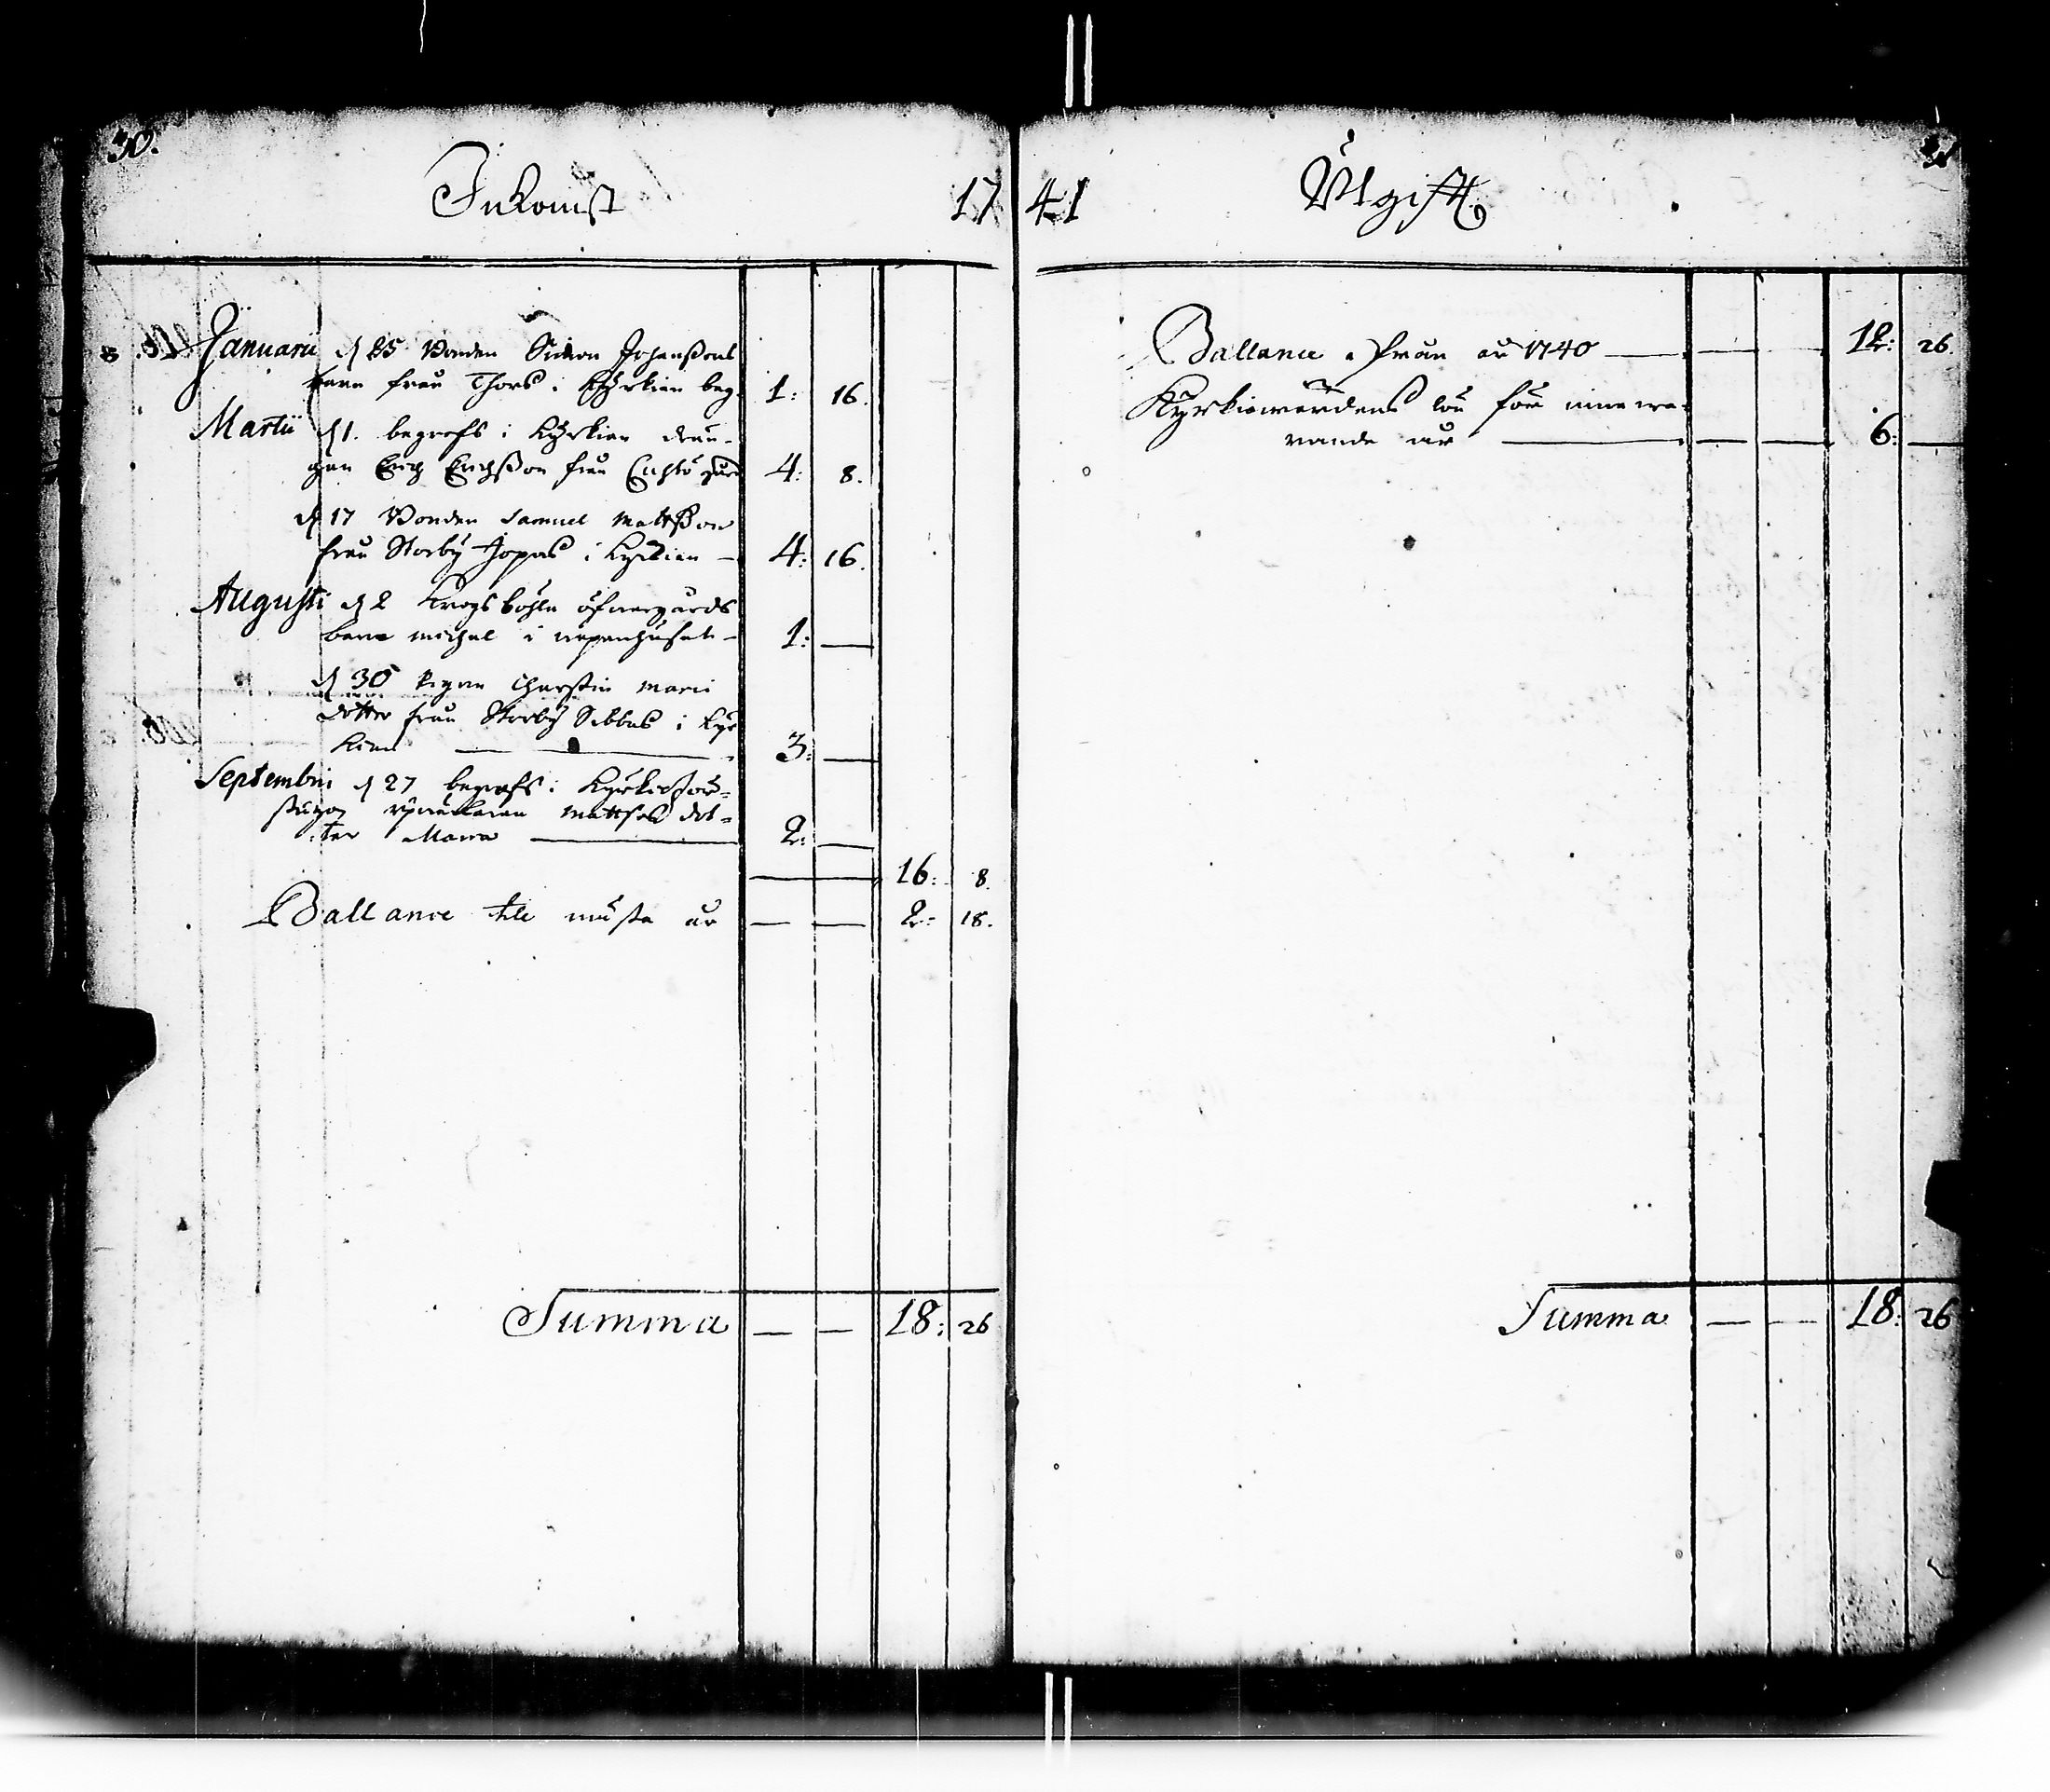 30.
Inkomst 17
Januarii d 25 Bonden Simon Johanssons
barn från Thors i Kyrkian beg. 1: 16.
Martii d 1. begrofs i Kyrkian drän-
gen Erich Erichsson från 4: 8.
d 17 Bonden Samuel Mattsson
från Storby Jopas i Kyrkian — 4: 16.
Augusti d 2 Krogsböhle öfnergårds
barn Michel i wapenhuset — 1: —
d 30 Pigan Cherstin Maris
dotter från Storby Sibbas i Kyr
kian — 3: —
Septembri d 27 begrofs i Kyrkio
Mattses dot-
ter Maria — 2: —
— 16: 8.
Ballance till nästa år — — 2: 18.
Summa — — 18: 26
41 Utgift
Ballance från år 1740 — — 12: 26.
Kyrkiowärdens lön för innewa-
rande år — — — 6: —
Summa — — 18: 26